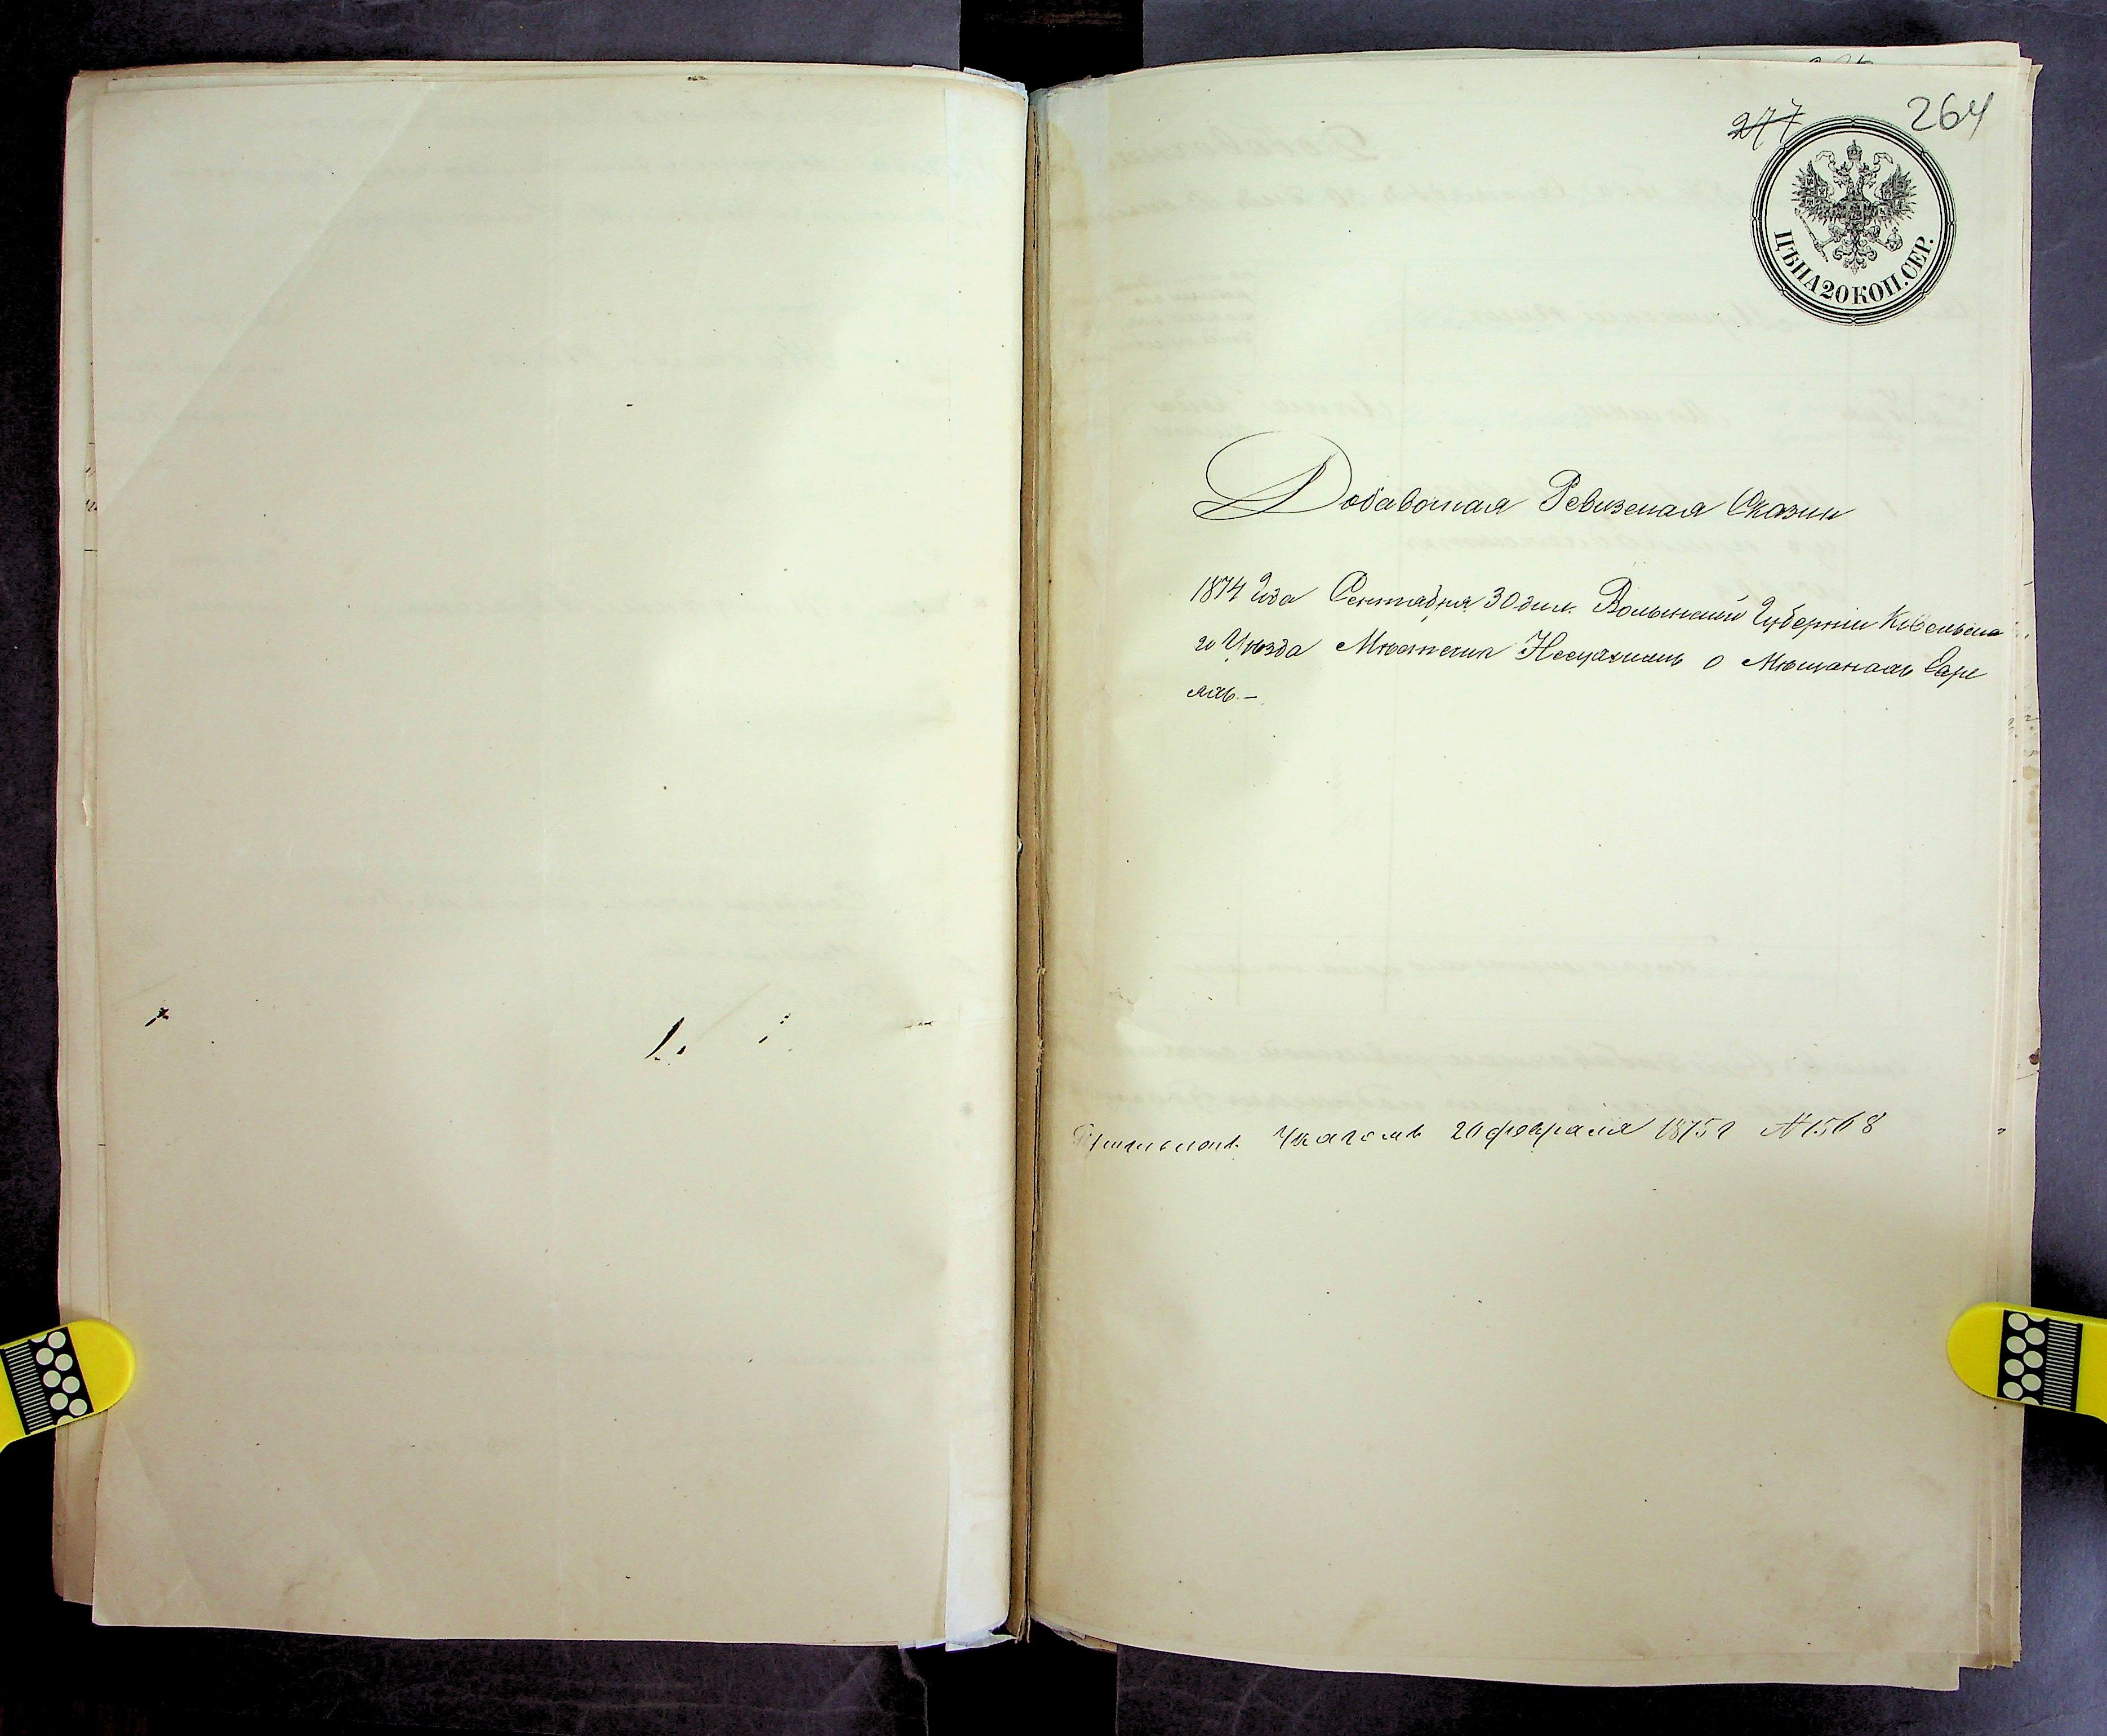 277
264
ЦѢНА 20 КОП. СЕР.
Добавочная Ревизская Сказка
1874 года Сентября 30 дня. Волынской Губерніи Ковельска
го Уѣзда Мѣстечка Несухоижъ о Мѣщанахъ Евре
яхъ.—
Указомъ 20 февраля 1875 г №1568